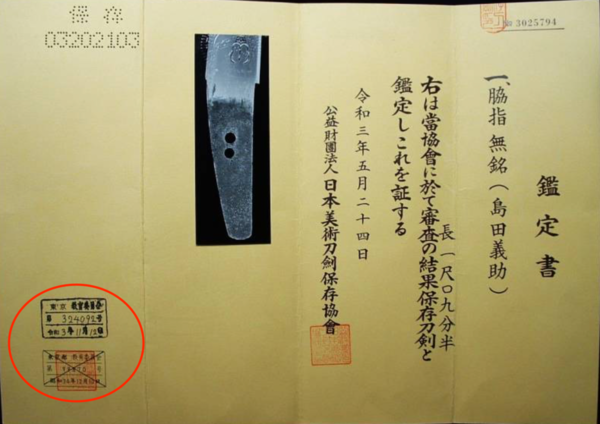 No 3025794
鑑定書
一、脇指 無銘(島田義助)
長一尺〇九分半
右は當協會に於て審査の結果保存刀剣と
鑑定しこれを証する
令和三年五月二十四日
公益財團法人 日本美術刀劍保存協會
保存
03202103
東京 教育委員会
第 324092号
令和3年11月12日
第 号